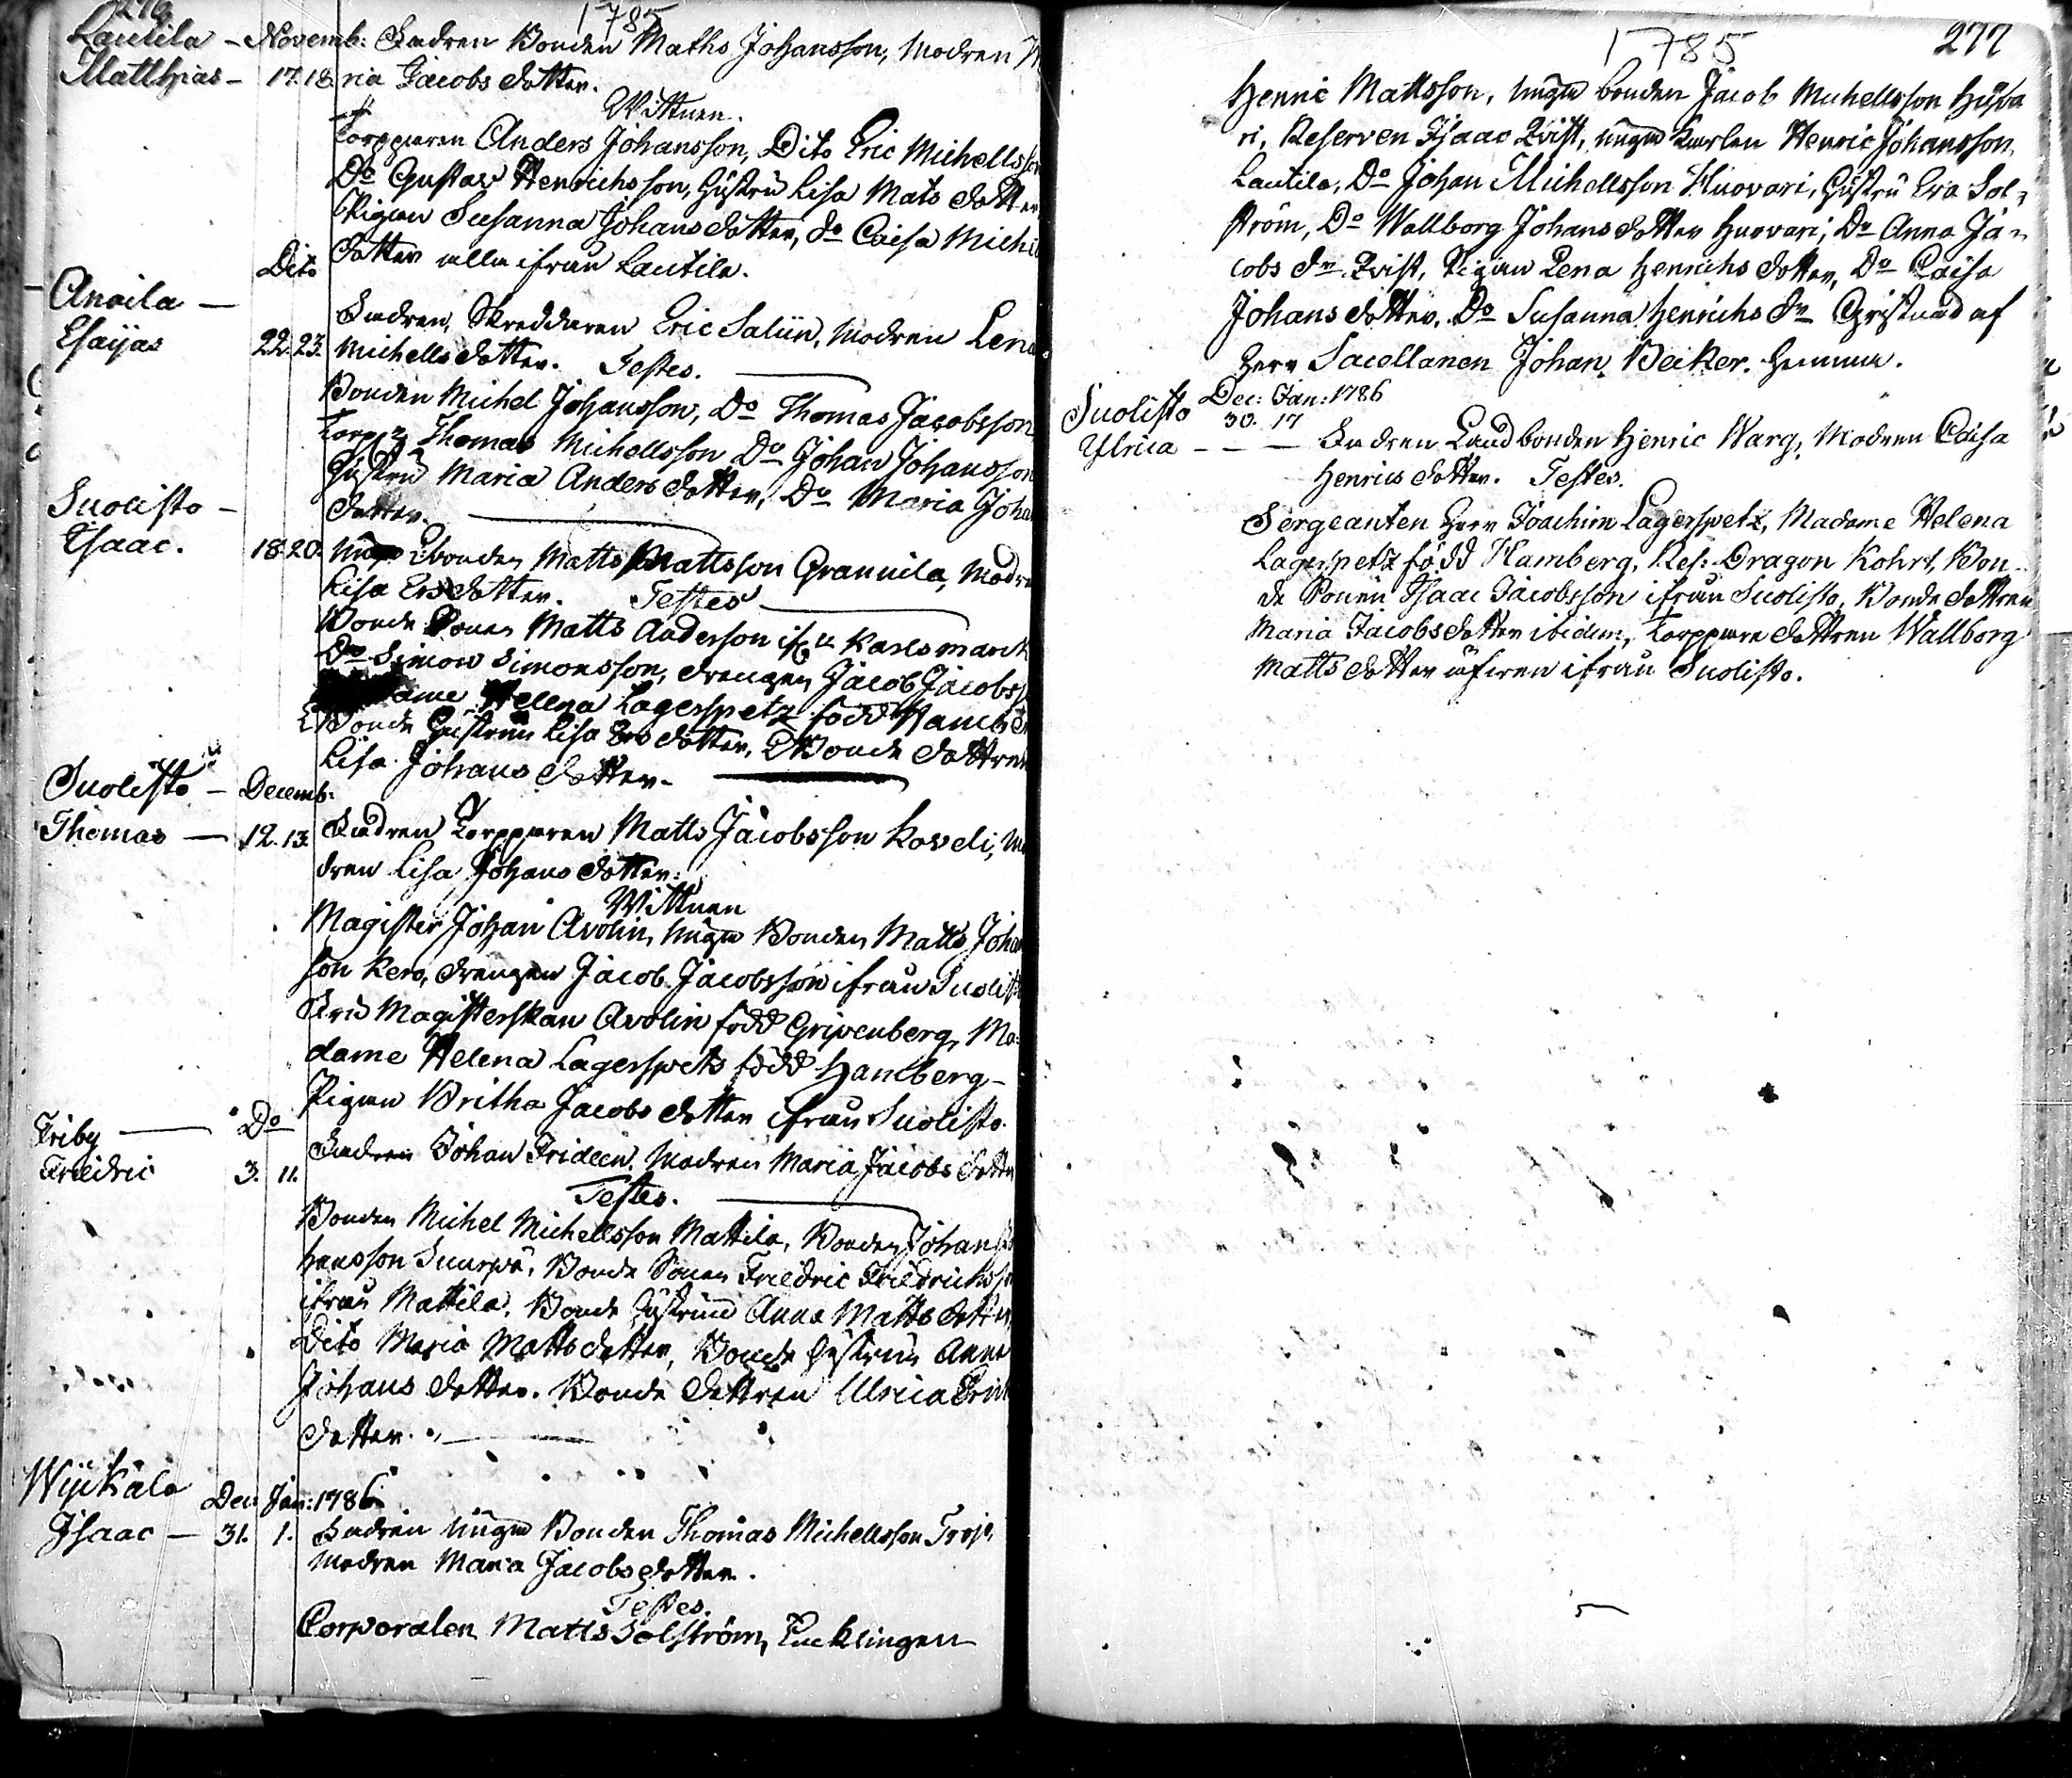 276.
1785
Lautila – Novemb: Fadren Bonden Maths Johansson, Modren M
Matthias – 17. 18. ria Jacobs dotter.
Wittnen.
Torpparen Anders Johansson, Dito Eric Michellsson
Do Gustav Henrichsson, Hustru Lisa Mats dotter
Pigan Susanna Johans dotter, do Caisa Michels
dotter alla ifrån Lautila.
Anoila – Dito
Fadren, Skreddaren Eric Salin, Modren Lena
Esaijas 22. 23. Michells dotter. Testes.
Bonden Michel Johansson, Do Thomas Jacobsson
Torp: Thomas Michellsson Do Johan Johansson
Hustru Maria Anders dotter, Do Maria Johans
dotter.
Suolisto –
Isaac. 18. 20. bonden Matts Mattsson Grannila, Modren
Lisa Ers dotter. Testes
Bonde Sonen Matts Anderson Karlsmark
Do Simon Simonsson, drengen Jacob Jacobsson
Helena Lagerspetz född Hamberg
Bonde Hustrun Lisa Ers dotter, Bonde dottren
Lisa Johans dotter.
Suolisto – Decemb:
Thomas – 12. 13. Fadren Torpparen Matts Jacobsson Koveli, Mo
dren Lisa Johans dotter:
Wittnen
Magister Johan Avolin, unga Bonden Matts Johan
son Kero, drengen Jacob Jacobsson ifrån Suolisto
Fru Magisterskan Avolin född Gripenberg, Ma=
dame Helena Lagerspets född Hamberg –
Pigan Britha Jacobs dotter ifrån Suolisto.
Friby – Do
Fadren Johan Frideen, Modren Maria Jacobs dotter
Friedric 3. 11.
Testes.
Bonden Michel Michellsson Mattila, Bonden Johan
hansson Suurpä, Bonde Sonen Friedric Friedrichsson
ifrån Mattila, Bonde Hustrun Anna Matts dotter,
Dito Maria Matts dotter, Bonde Hustrun Anna
Johans dotter. Bonde dottren Ulrica Erics
dotter.
Wijkala Dec: Jan: 1786
Isaac – 31. 1. Fadren unga Bonden Thomas Michellsson Troji,
Modren Maria Jacobs dotter.
Testes.
Corporalen Matts Solström,
1785
277
Henric Mattsson, unga bonden Jacob Michellsson Huova
ri, Reserven Isaac Qvist, unga Karlen Henric Johansson
Lautila, Do Johan Michellsson Huovari, Hustru Eva Sol=
ström, Do Wallborg Johans dotter Huovari, Do Anna Ja=
cobs dr Qvist, Pigan Lena Henrichs dotter, Do Caisa
Johans dotter, Do Susanna Henrichs dr Christnad af
Herr Sacellanen Johan Beiker. hemma.
Dec: Jan: 1786
Suolisto 30. 17
Ulrica – – – Fadren Landbonden Henric Warg, Modren Caisa
Henrics dotter. Testes.
Sergeanten Herr Joachim Lagerspetz, Madame Helena
Lagerspetz född Hamberg, Res: Dragon Kohrt, Bon=
de Sonen Isaac Jacobsson ifrån Suolisto, Bonde dottren
Maria Jacobs dotter ibidem, Torppare dottren Wallborg
Matts dotter ifrån Suolisto.